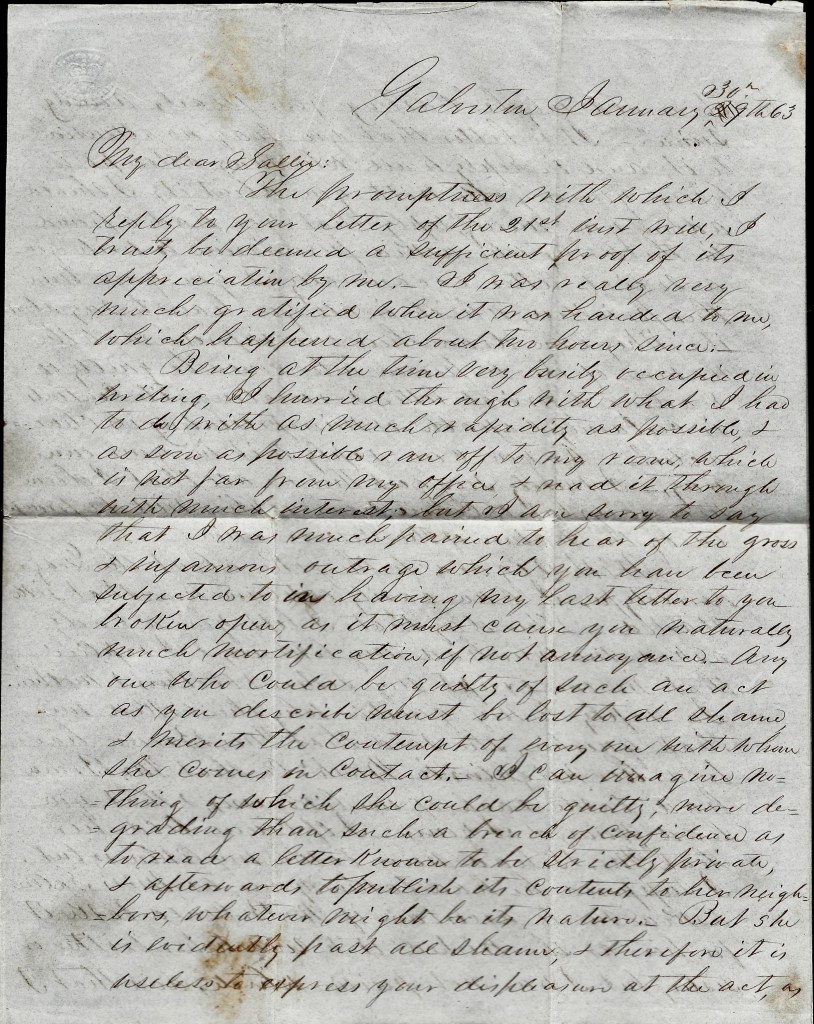 30th
Galveston January 29th 63
My dear Sallie:
The promptness with which I
reply to your letter of the 21st inst will, I
trust, be deemed a sufficient proof of its
appreciation by me. — I was really very
much gratified when it was handed to me,
which happened about two hours since. —
Being at the time very busily occupied in
writing, I hurried through with what I had
to do, with as much rapidity as possible, &
as soon as possible ran off to my room, which
is not far from my office, & read it through
with much interest, but I am sorry to say
that I was much pained to hear of the gross
& infamous outrage which you have been
subjected to in having my last letter to you
broken open, as it must cause you naturally
much mortification, if not annoyance. — Any
one who could be guilty of such an act
as you describe must be lost to all shame,
& merits the contempt of every one with whom
she comes in contact. — I can imagine no-
-thing of which she could be guilty, more de-
-grading than such a breach of confidence as
to read a letter known to be strictly private,
& afterwards to publish its contents to her neigh-
-bors, whatever might be its nature. — But she
is evidently past all shame, & therefore it is
useless to express your displeasure at the act, as